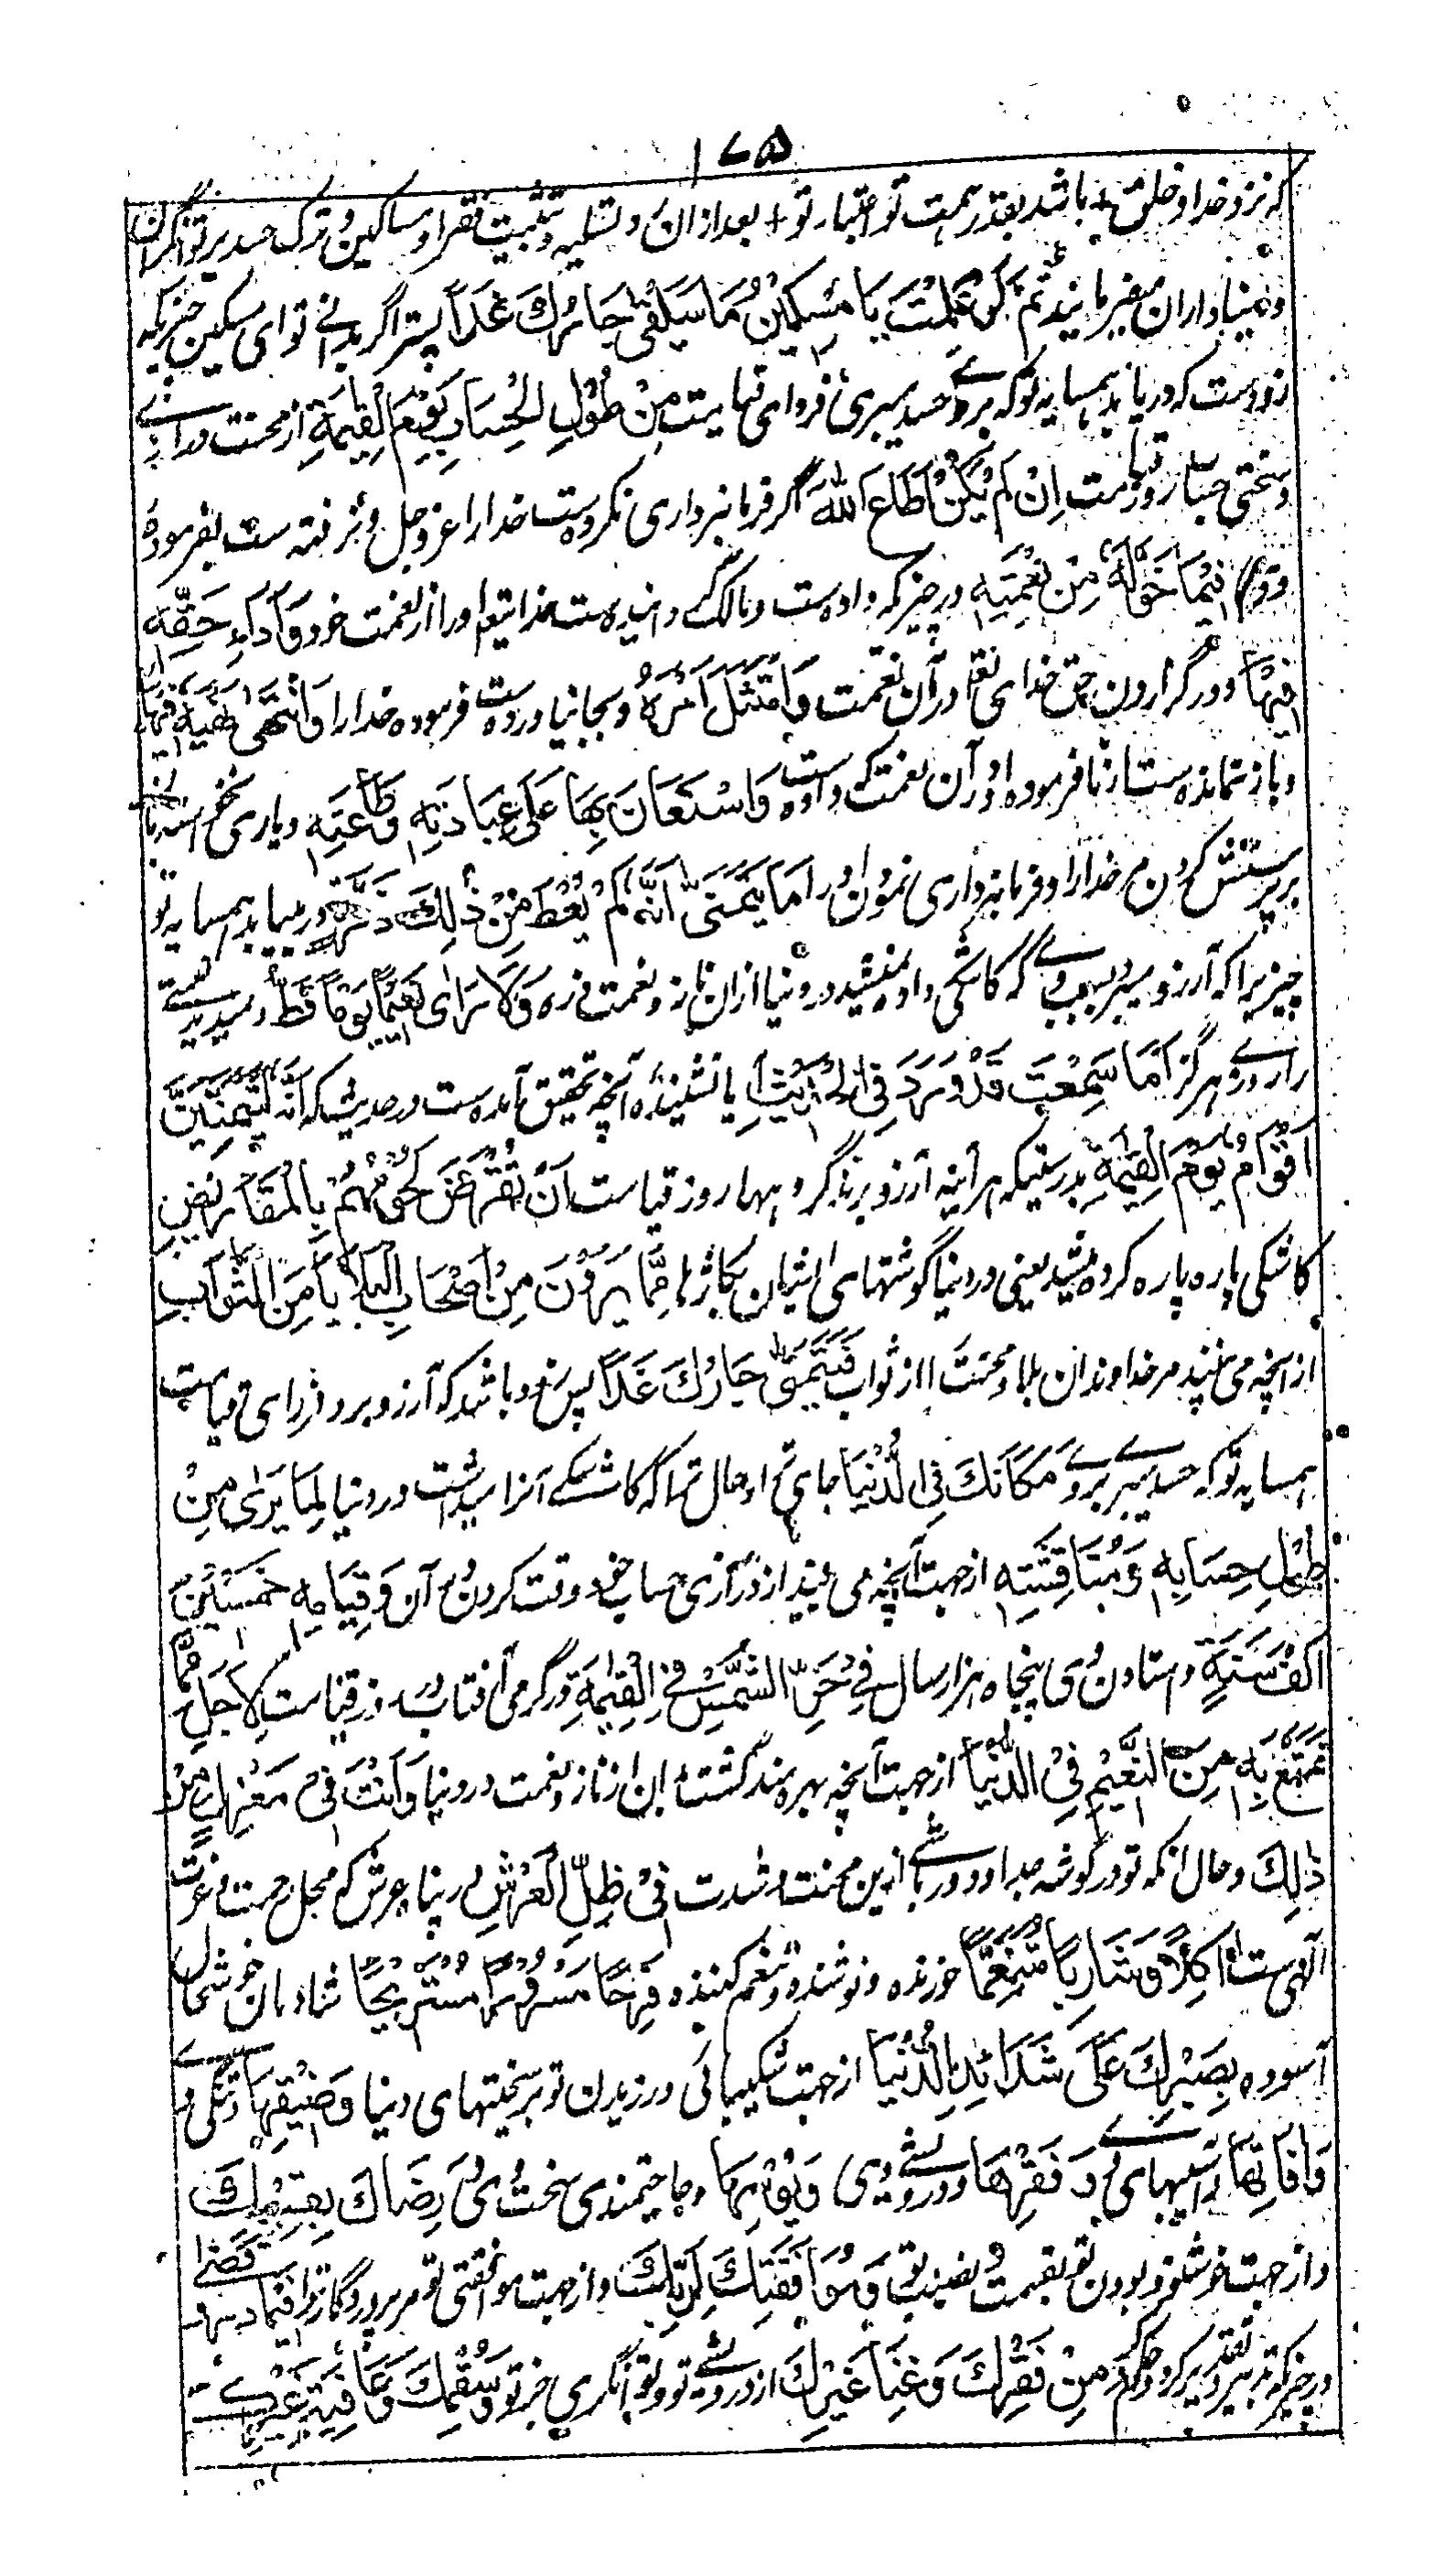 ۱۷۵
که نزد خدا و خلق + باشد بقدر همت تو اعتبار تو + بعد ازان در تسلیه و تثبیت فقرا و مساکین و ترک حسد بر توانگران
و دنیاداران میفرمایند ثُمَّ لَوْ عَلِمْتَ يَا مِسْكِيْنُ مَا سَيَلْقٰى جَارُكَ غَدًا پستر اگر بدانے تو ای مسکین چیزیکه
زودست که دریابد همسایه تو که بروے حسد میبری فردای قیامت مِنْ طُوْلِ الْحِسَابِ يَوْمَ الْقِيٰمَةِ از محنت درازے
و سختی حساب روز قیامت اِنْ لَمْ يَكُنْ اَطَاعَ اللهَ اگر فرمانبرداری نکرده ست خدا را عز و جل و نرفته ست بفرموده
وی فِيْمَا خَوَّلَهٗ مِنْ نِعْمَتِهٖ در چیز که داده ست و مالک گردانیده ست خدایتعالی او را از نعمت خود وَاَدَاءِ حَقِّهٖ
فِيْهَا و در گزاردن حق خدای تعالی در آن نعمت وَامْتَثَلَ اَمْرَهٗ و بجا نیاورده ست فرموده خدا را وَانْتَهٰى نَهْيَهٗ فِيْهَا
و باز نمانده ست از نافرموده او در آن نعمت که داده ست وَاسْتَعَانَ بِهَا عَلٰى عِبَادَتِهٖ وَطَاعَتِهٖ و یاری نخواسته بآن
بر پرستش کردن مر خدا را و فرمانبرداری نمودن او را مَا يَتَمَنّٰى اَنَّهٗ لَمْ يُعْطَ مِنْ ذٰلِكَ ذَرَّةً درمییابد همسایه تو
چیزیرا که آرزو میبرد بسبب وے که کاشکی داده نمیشد در دنیا ازان ناز و نعمت ذره وَلَا رَاٰى نَعِيْمًا يَوْمًا قَطُّ و نمیدید
را روزے هرگز اَمَا سَمِعْتَ قَدْ وَرَدَ فِى الْحَدِيْثِ آیا نشنیده آنچه تحقیق آمده ست در حدیث که اِنَّهٗ لَيَتَمَنَّيَنَّ
اَقْوَامٌ يَوْمَ الْقِيٰمَةِ بدرستیکه هرآینه آرزو برند گروهها روز قیامت اَنْ تُقْرَضَ لُحُوْمُهُمْ بِالْمَقَارِيْضِ
کاشکی پاره پاره کرده میشد یعنی در دنیا گوشتهای ایشان بکاژها مِمَّا يَرَوْنَ مِنْ اَصْحَابِ الْبَلَايَا مِنَ الثَّوَابِ
از آنچه می بینند مر خداوندان بلا و محنت را از ثواب فَيَتَمَنّٰى جَارُكَ غَدًا پس زود باشد که آرزو برد فردای قیامت
همسایه تو که حسد میبری بروے مَكَانَكَ فِى الدُّنْيَا جای ترا و حال ترا که کاشکے آنرا میداشت در دنیا لِمَا يَرٰى مِنْ
طُوْلِ حِسَابِهٖ وَمُنَاقَشَتِهٖ از جهت آنچه می بیند از درازی حساب خود و دقت کردن بر آن وَقِيَامِهٖ خَمْسِيْنَ
اَلْفَ سَنَةٍ و استادن وی پنجاه هزار سال فِىْ حَرِّ الشَّمْسِ فِى الْقِيٰمَةِ در گرمی آفتاب در روز قیامت لِاَجْلِ مَا
تَمَتَّعَ بِهٖ مِنَ النَّعِيْمِ فِى الدُّنْيَا از جهت آنچه بهره مند گشت بآن از ناز و نعمت در دنیا وَاَنْتَ فِىْ مَعْزِلٍ مِنْ
ذٰلِكَ و حال آنکه تو در گوشه جدا و دور باشے ازین محنت و شدت فِىْ ظِلِّ الْعَرْشِ در پناه عرش که محل رحمت و عزت
الٰهی ست اٰكِلًا وَشَارِبًا مُتَنَعِّمًا خورنده و نوشنده و تنعم کننده فَرِحًا مَسْرُوْرًا مُسْتَرِيْحًا شادمان خوشحال
آسوده بِصَبْرِكَ عَلٰى شَدَائِدِ الدُّنْيَا از جهت شکیبائی ورزیدن تو بر سختیهای دنیا وَضِيْقِهَا و تنگی
وَاٰفَاتِهَا و آسیبهای وی وَفَقْرِهَا و درویشے وی وَبُؤْسِهَا و حاجتمندی سخت وی وَرِضَاكَ بِقِسْمِكَ
و از جهت خوشنود بودن تو بقسمت و نصیب تو وَمُوَافَقَتِكَ لِرَبِّكَ و از جهت موافقتی تو مر پروردگار ترا فِيْمَا دَبَّرَ وَقَضٰى
در چیزیکه تدبیر و تقدیر کرد و حکم کرد مِنْ فَقْرِكَ وَغِنَا غَيْرِكَ از درویشے تو و توانگری جز تو وَسُقْمِكَ وَعَافِيَةِ غَيْرِكَ